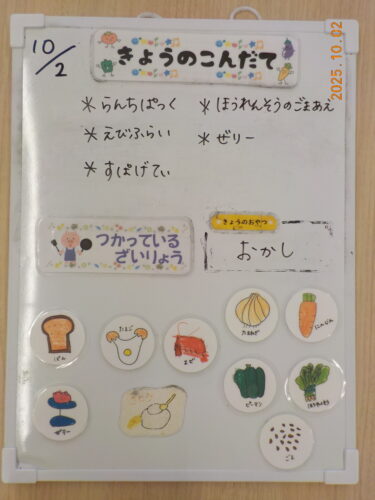 10/2
きょうのこんだて
2025.10.02
＊らんちぱっく
＊ほうれんそうのごまあえ
＊えびふらい
＊ぜりー
＊すぱげてぃ
きょうのおやつ
おかし
つかっている
ざいりょう
ぱん
たまご
えび
たまねぎ
にんじん
ぜりー
ピーマン
ごま